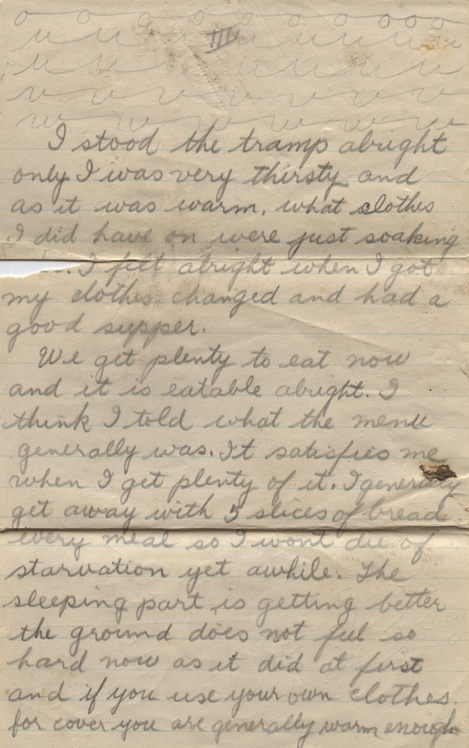 III
I stood the tramp alright
only I was very thirsty and
as it was warm. what clothes
I did have on were just soaking
. I felt alright when I got
my clothes changed and had a
good supper.
We get plenty to eat now
and it is eatable alright. I
think I told what the menu
generally was. It satisfies me
when I get plenty of it. I generaly
get away with 5 slices of bread
every meal so I wont die of
starvation yet awhile. The
sleeping part is getting better
the ground does not feel so
hard now as it did at first
and if you use your own clothes.
for cover you are generally warm enough